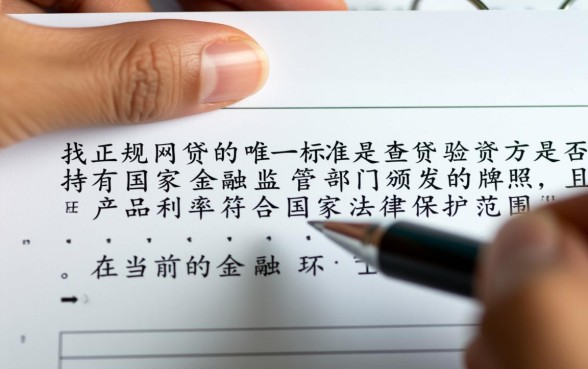 找正规网贷的唯一标准是查贷验资方是否
持有国家金融监管部门颁发的牌照，且
产品利率符合国家法律保护范围
。在当前的金融环